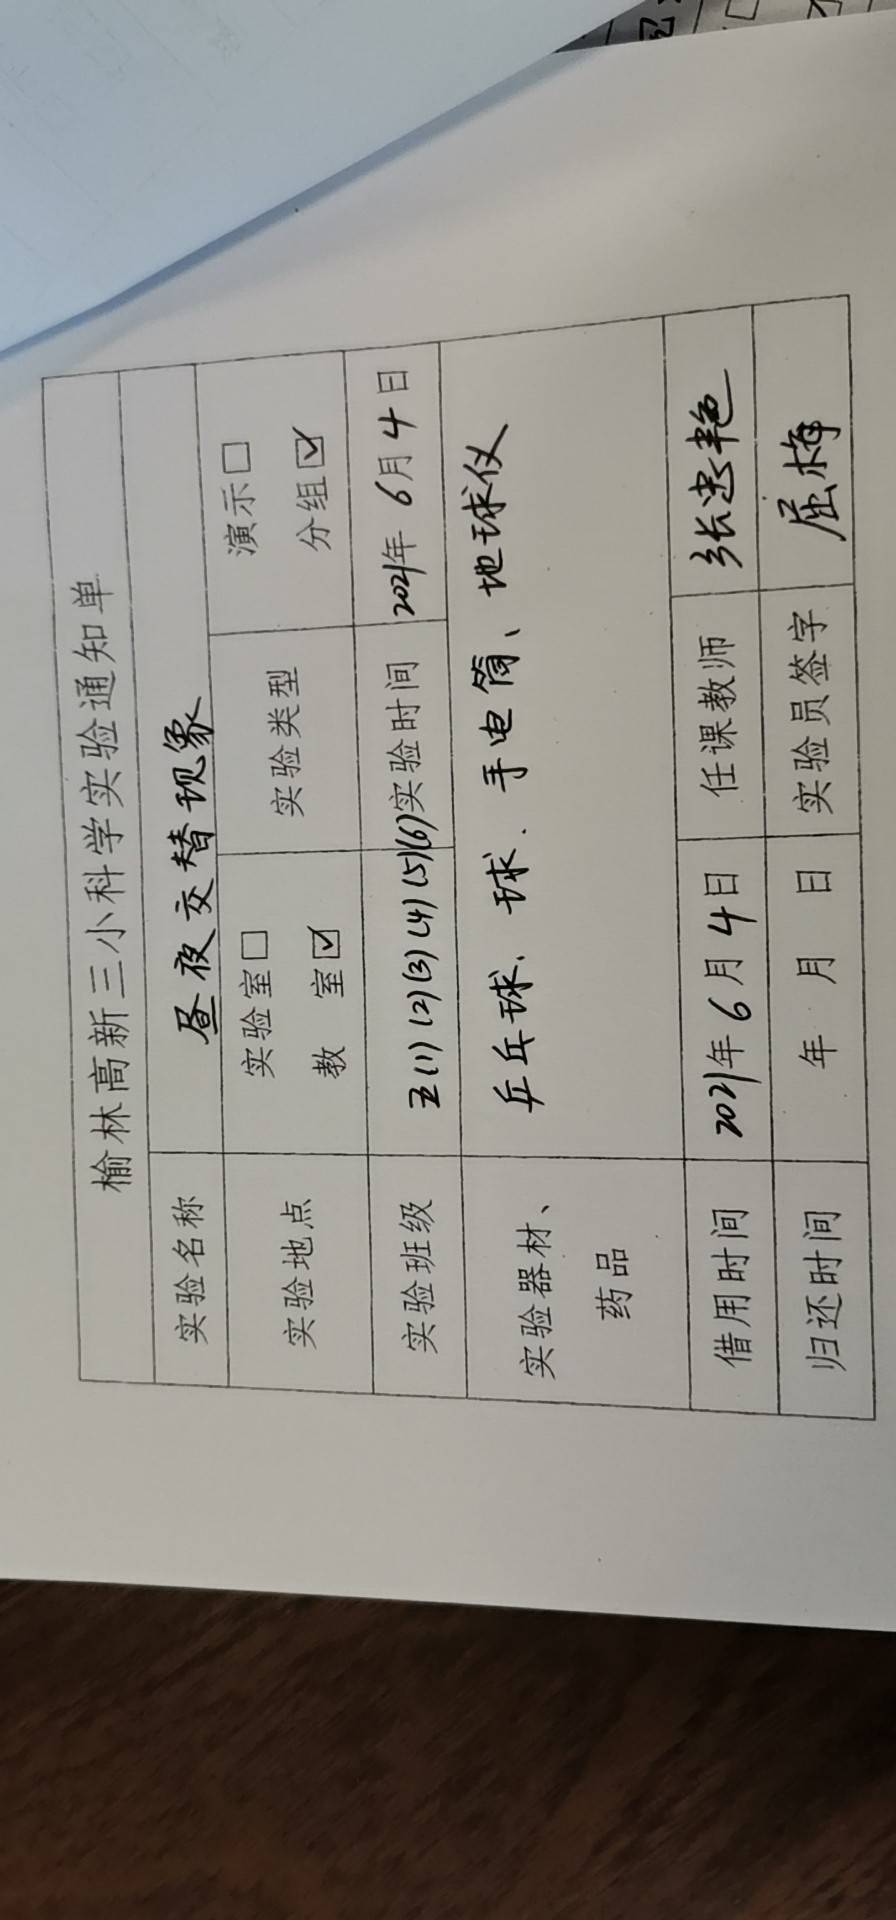 榆林高新三小科学实验通知单
实验名称 昼夜交替现象
实验地点 实验室□ 教 室☑ 实验类型 演示□ 分组☑
实验班级 五(1)(2)(3)(4)(5)(6) 实验时间 2021年6月4日
实验器材、药品 乒乓球、球、手电筒、地球仪
借用时间 2021年6月4日 任课教师 张忠艳
归还时间 年 月 日 实验员签字 屈梅